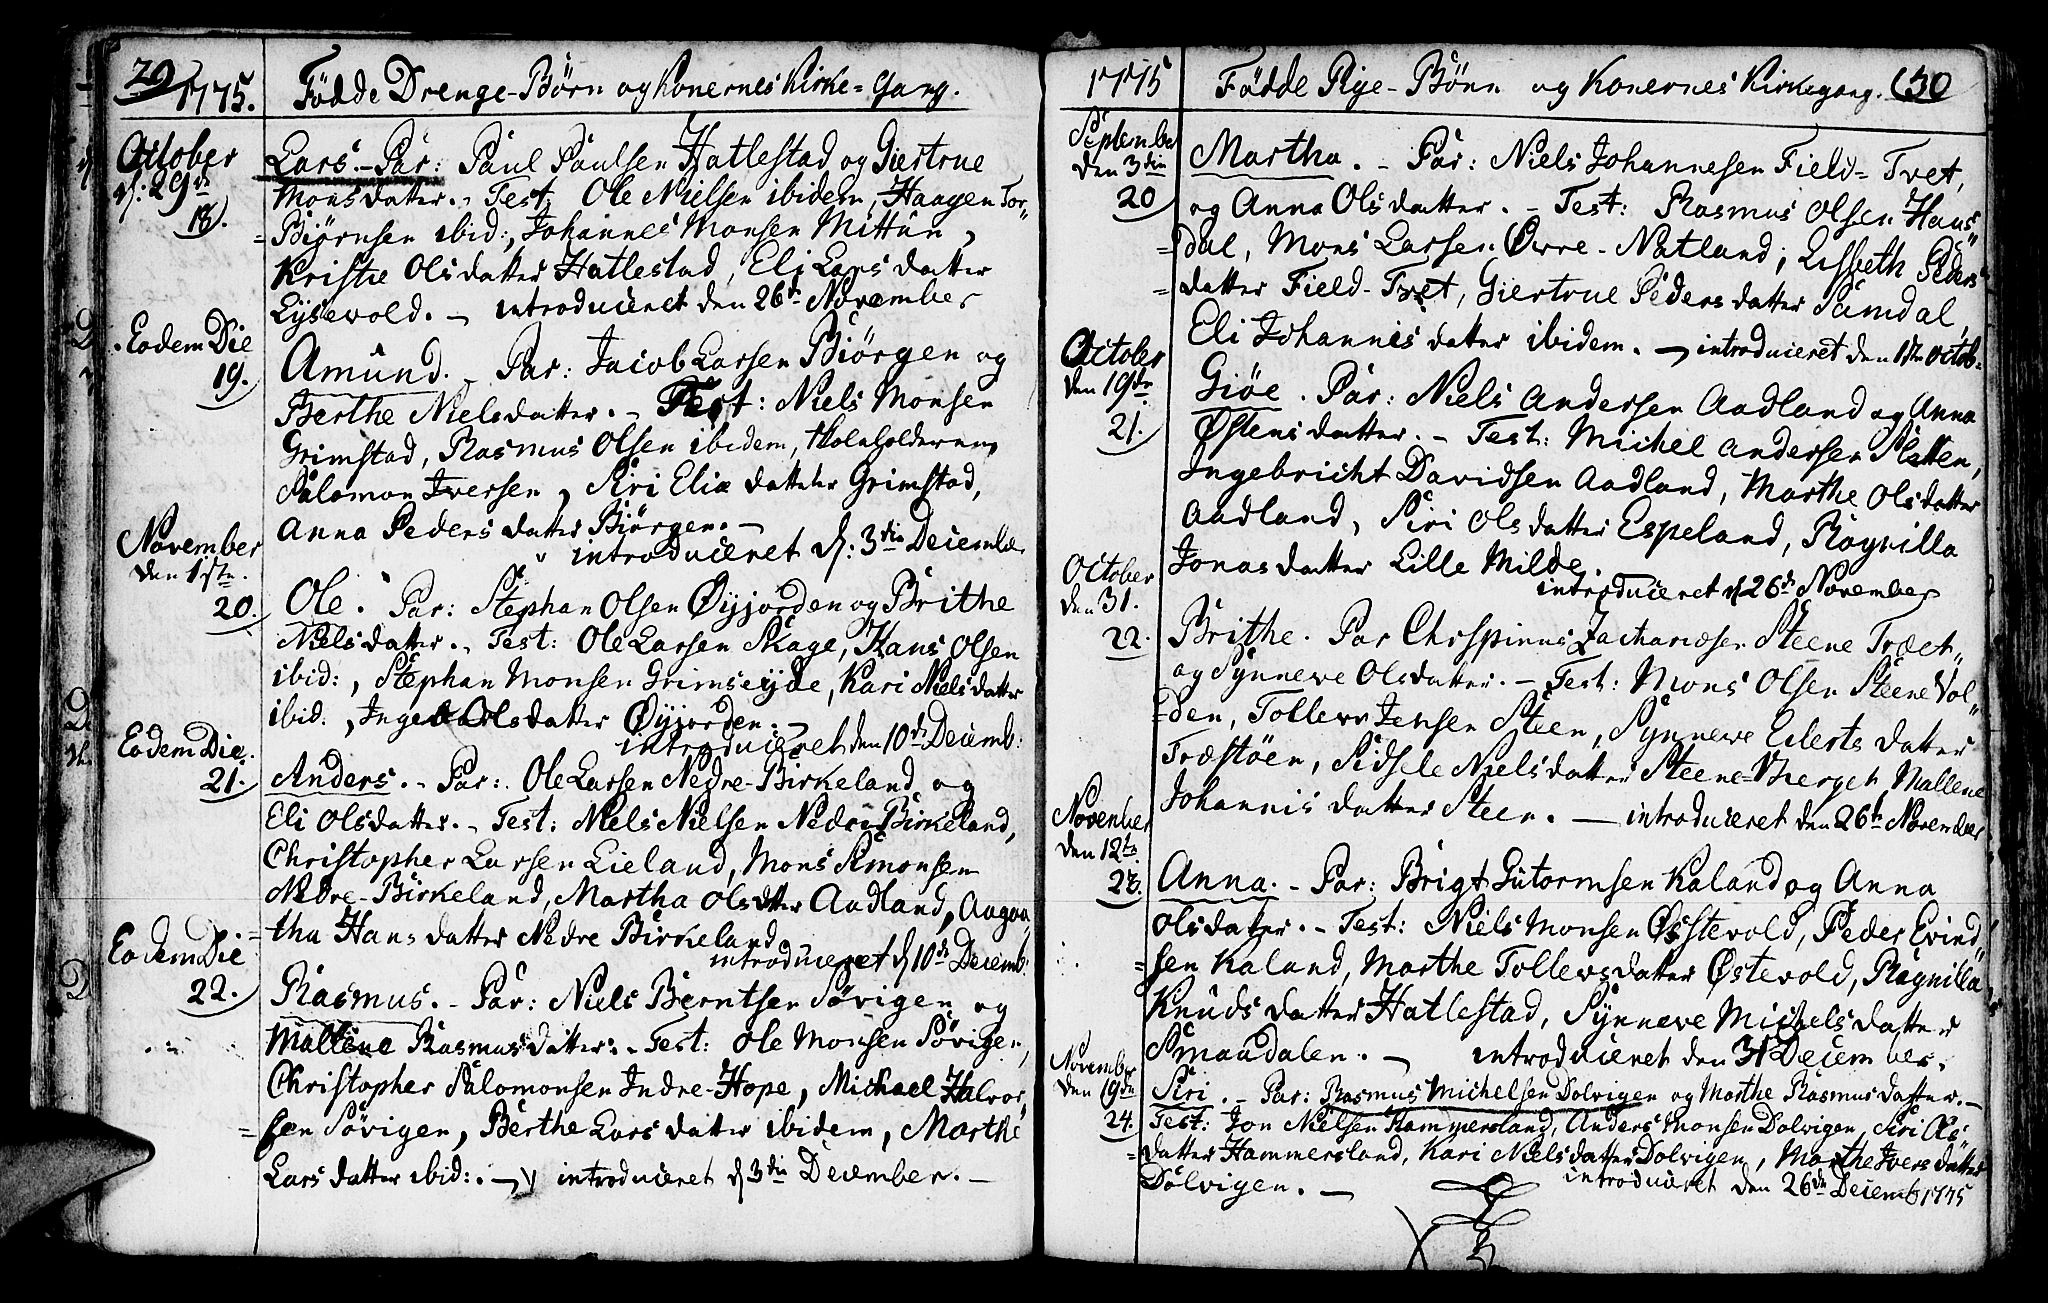 29
1775.
Fødde Drenge-Børn og Konernes Kirke-Gang.
October
d: 29de
18.
Lars. - Par: Paul Paulsen Hatlestad og Giertrue
Monsdatter. - Test: Ole Nielsen ibidem, Haagen Tor-
=Biørnsen ibid:, Johannes Monsen Mittun,
Kristie Olsdatter Hatlestad, Eli Larsdatter
Lysevold. - introduceret den 26de November
Eodem Die
19.
Amund. - Par: Jacob Larsen Biørgen og
Berthe Nielsdatter. - Test: Niels Monsen
Grimstad, Rasmus Olsen ibidem, Skoleholderen
Salomon Iversen, Siri Eliædatter Grimstad,
Anna Pedersdatter Biørgen. -
introduceret d: 3die Decembr
November
den 1ste.
20.
Ole. Par: Stephan Olsen Øyjorden og Brithe
Nielsdatter. - Test: Ole Larsen Skage, Hans Olsen
ibid:, Stephan Monsen Grimseyde, Kari Nielsdatter
ibid:, Ingebor Olsdatter Øyjorden. -
introduceret den 10de Decemb:
Eodem Die.
21.
Anders. - Par: Ole Larsen Nedre-Birkeland og
Eli Olsdatter. - Test: Niels Nielsen Nedre Birkeland,
Christopher Larsen Lieland, Mons Simonsen
Nedre-Birkeland, Martha Olsdtter Aadland, Aaga-
=tha Hansdatter Nedre Birkeland
introduceret d 10de Decemb.
Eodem Die
22.
Rasmus. - Par: Niels Berntsen Søvigen og
Mallene Rasmusdatter. - Test: Ole Monsen Søvigen,
Christopher Salomonsen Indre-Hope, Michael Halvor-
=sen Søvigen, Berthe Larsdatter ibidem, Marthe
Larsdatter ibid:. - introduceret d 3die December. -
1775
Fødde Pige-Børn og Konernes Kirkegang. (30
September
den 3die
20
Martha. - Par: Niels Johannesen Field-Tvet,
og Anna Olsdatter. - Test: Rasmus Olsen Haus-
=dal, Mons Larsen Øvre-Natland, Lisbeth Peders-
=datter Field-Tvet, Giertrue Pedersdatter Samdal,
Eli Johannisdatter ibidem. - introduceret den 1ste Octob-
October
den 19de
21.
Giøe. Par: Niels Andersen Aadland og Anna
Østensdatter. - Test: Michel Andersen Sletten,
Ingebricht Davidsen Aadland, Marthe Olsdatter
Aadland, Siri Olsdatter Espeland, Ragnilla
Jonasdatter Lille Milde.
introduceret d 26de November
October
den 31.
22.
Brithe. Par Chrspinus Zachariasen Steene Træet
og Synneve Olsdatter. - Test: Mons Olsen Steene Vol-
=den, Tollew Jensen Steen, Synneve Eilertsdatter
Træstøen, Sidsele Nielsdatter Steene-Berget, Mallene
Johannisdatter Steen. - introduceret den 26de November
November
den 12te
23.
Anna. - Par: Brigt Gutormsen Kaland og Anna
Olsdatter. - Test: Niels Monsen Østevold, Peder Evind-
=sen Kaland, Marthe Tollewsdatter Østevold, Ragnilla
Knudsdatter Hatlestad, Synneve Michelsdatter
Smaadalen. - introduceret den 31 December.
November
den 19de
24.
Siri. - Par: Rasmus Michelsen Dolvigen og Marthe Rasmusdatter. -
Test: Jon Nielsen Hammersland, Anders Monsen Dolvigen, Siri Ols-
=datter Hammersland, Kari Nielsdatter Dolvigen, Marthe Iversdatter
Dolvigen. - introduceret den 26de Decemb 1775